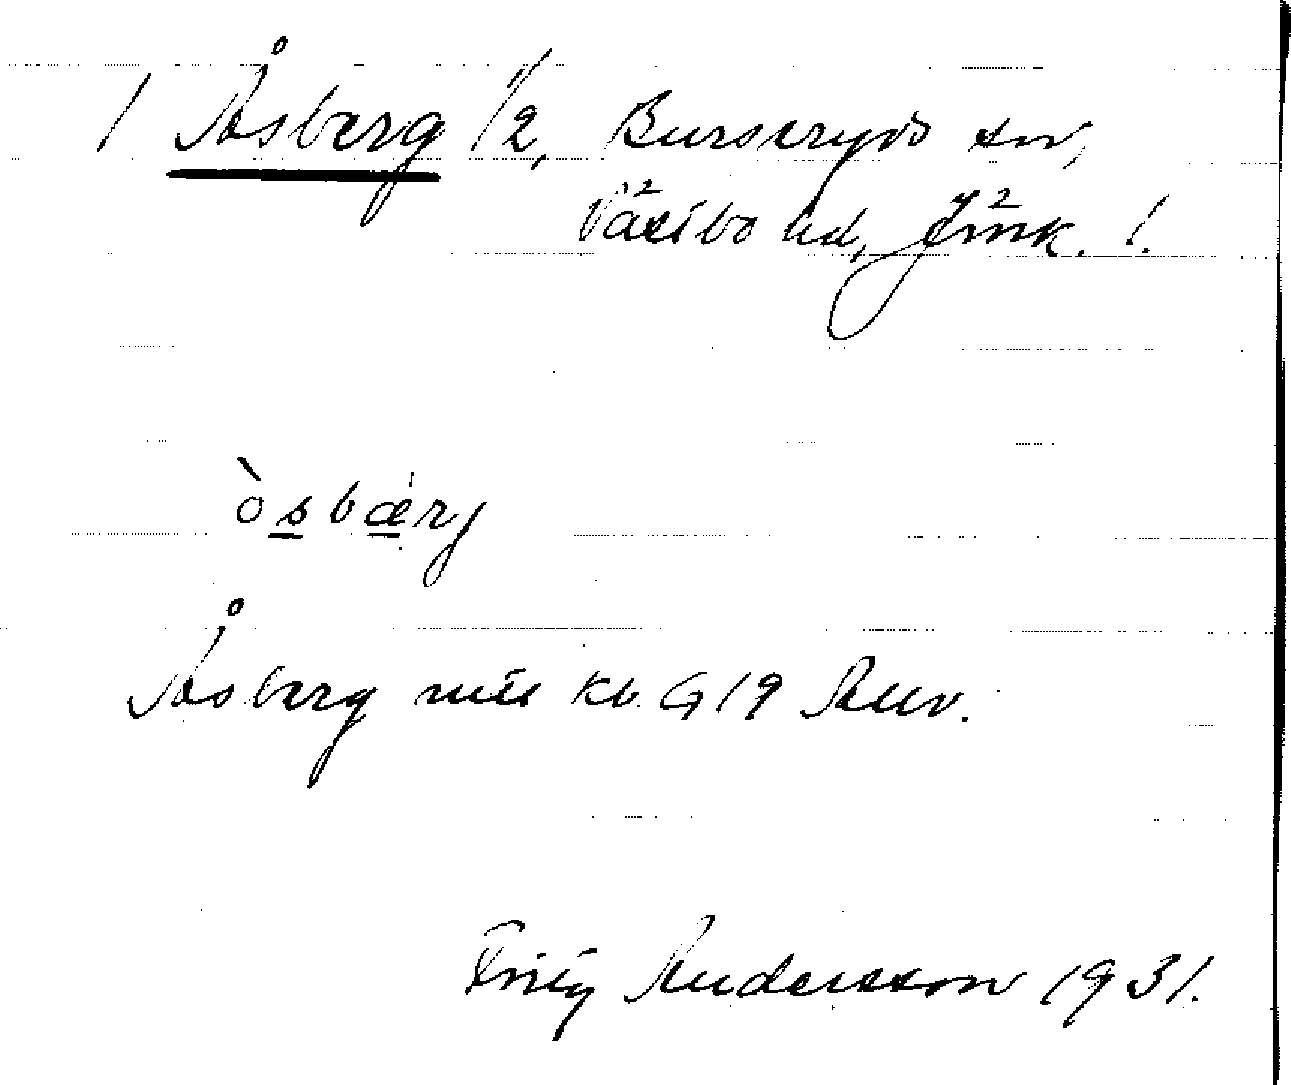 / Åsberg 1/2, Burseryds sn,
Västbo hd, Jönk. l.
òsbærj
Åsberg kb. G 19 Anv.
Fritz Andersson 1931.